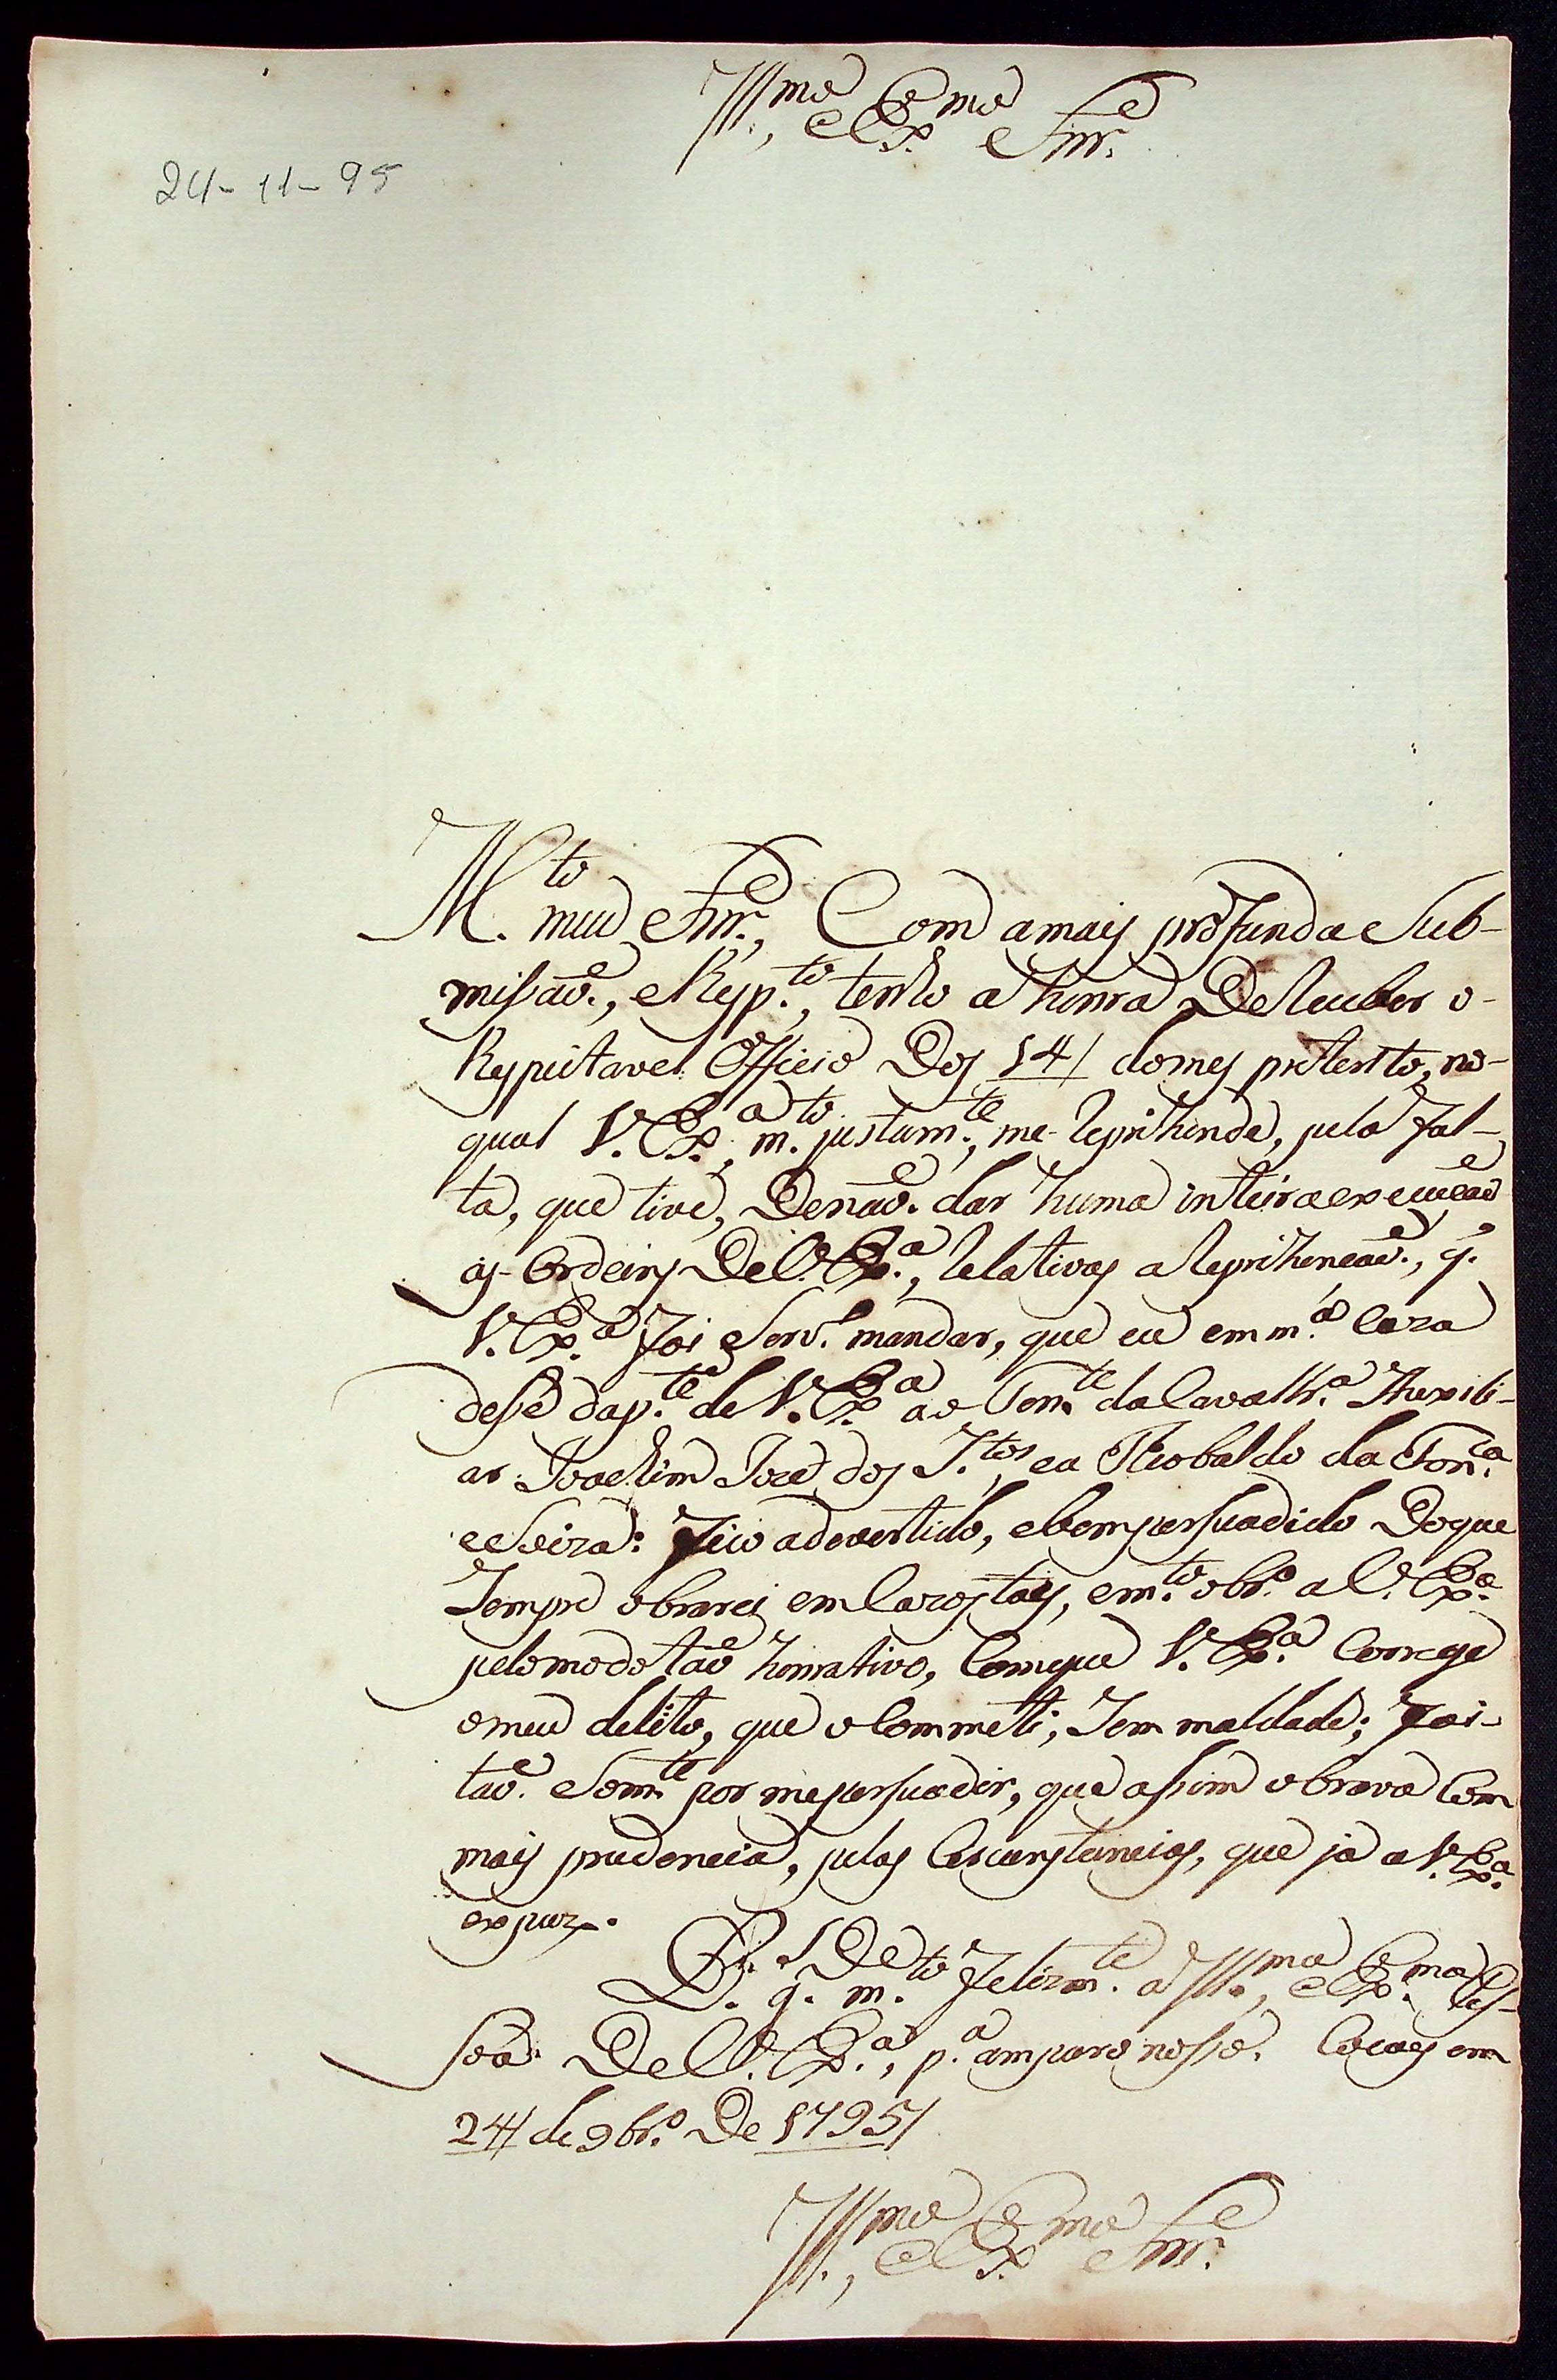 Ill.mo, e Ex.mo Snr.
24-11-95
M.to meu Snr., Com a mais profunda Sub-
missaõ, e Resp.to, tenho a honra De receber o
Respeitavel Officio Dos 14/ do mes preterito, no
qual V. Ex.a, m.to justam.te, me reprihende, pela fal-
ta, que tive, De naõ dar huma inteira execuçaõ
as Ordeins De V. Ex.a, relativas a reprihençaõ, q.
V. Ex.a foi Serv.o mandar, que eu em m.a Caza
desse da p.te de V. Ex.a ao Ten.te da Cavallr.a Auxili-
ar Joachim Joze dos S.tos e a Theobaldo da Fon.ca
e Seiza: Fico adevertido, e bem persuadido Do que
Sempre obrarei em Cazos tais, e m.to obr.o a V. Ex.a
pelo modo taõ honrativo, Com que V. Ex.a Correge
o meu delito, que o Commeti, Sem maldade; Foi
taõ Som.te por me persuadir, que assim obrava Com
mais prudencia, pelas Cercunstancias, que ja a V. Ex.a
expuz.
D.s g.De m.to Felizm.te a Ill.ma, e Ex.ma Pes-
soa De V. Ex.a, p.a amparo nosso. Cocais em
24/ de 9br.o De 1795/
Ill.mo, e Ex.mo Snr.